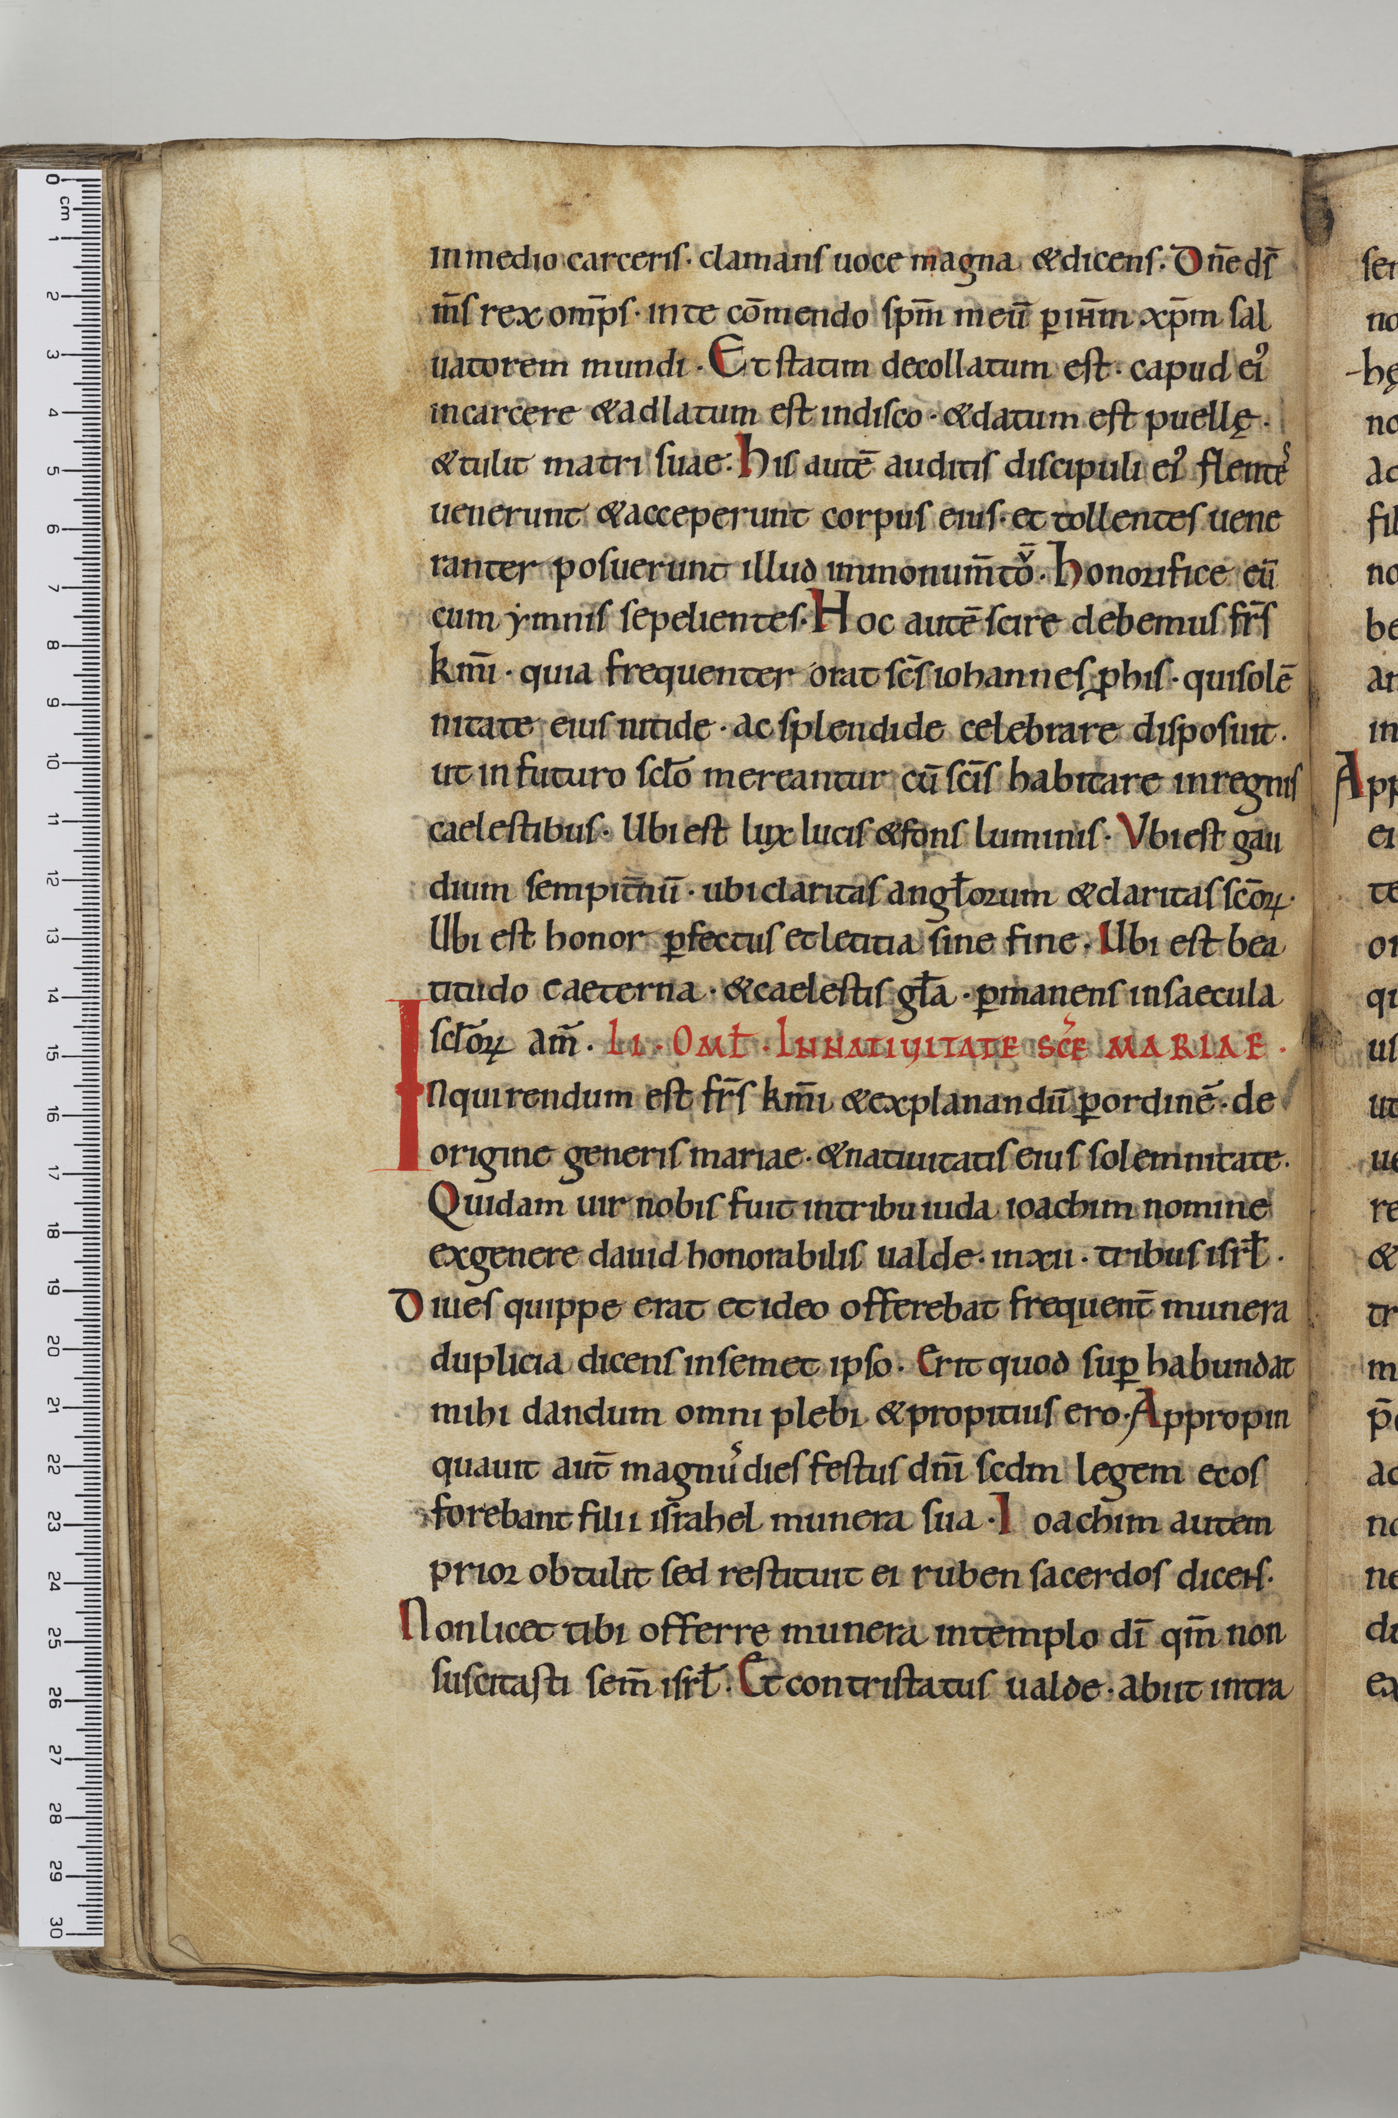 inmedio carceris · clamans uoce magna &dicens · Dn̄e ds̄
m̄s rex omp̄s · inte cōmendo sp̄m meū ꝑ ihm̄ xp̄m sal
uatorem mundi · Et statim decollatum est · capud eiꝰ
incarcere &adlatum est indisco · &datum est puellę ·
&tulit matri suae · His autē auditis discipuli eiꝰ flentes
uenerunt &acceperunt corpus eius · et tollentes uene
ranter posuerunt illud inmonum̄to · Honorifice eū
cum ymnis sepelientes · Hoc autē scire debemus fr̄s
km̄i · quia frequenter orat sc̄s iohannes ꝓhis · quisolē
nitate eius nitide · ac splendide celebrare disposuit ·
ut in futuro scl̄o mereantur cū sc̄is habitare inregnis
caelestibus · Ubi est lux lucis &fons luminis · Vbi est gau
dium sempit̄nū · ubi claritas angl̄orum &claritas sc̄oꝝ ·
Ubi est honor ꝑfectus et letitia sine fine · Ubi est bea
titudo eaeterna · &caelestis gl̄a · ꝑmanens insaecula
scl̄oꝝ am̄ · LI · OML̄ · INNATIUITATE SC̄E MARIAE ·
Inquirendum est fr̄s km̄i &explanandū ꝑordinē · de
origine generis mariae · &natiuitatis eius solemnitate ·
Quidam uir nobis fuit intribu iuda ioachim nomine
exgenere dauid honorabilis ualde · inxii · tribus isrl̄ ·
Diues quippe erat et ideo offerebat frequent̄ munera
duplicia dicens insemet ipso · Erit quod suꝑ habundat
mihi dandum omni plebi &propitius ero · Appropin
quauit aut̄ magnus dies festus dn̄i scdm legem ecos
forebant filii israhel munera sua · Ioachim autem
prior obtulit sed restituit ei ruben sacerdos dicens ·
Non licet tibi offerre munera intemplo dī qm̄ non
suscitasti sem̄ isrl̄ · Et contristatus ualde · abiit intra